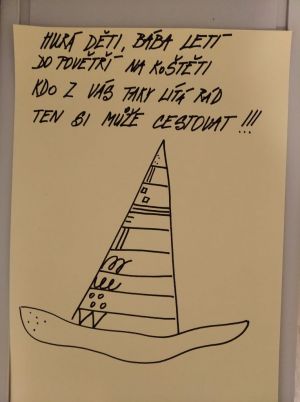 HURÁ DĚTI, BÁBA LETÍ
DO POVĚTŘÍ NA KOŠTĚTI
KDO Z VÁS TAKY LÍTÁ RÁD
TEN SI MŮŽE CESTOVAT !!!